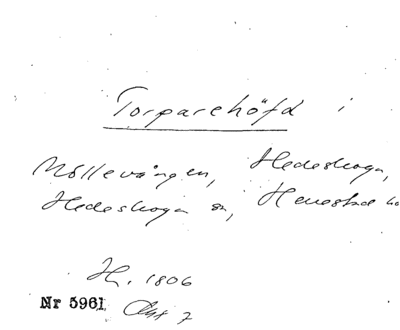 Torparehöfd i
Möllevången, Hedeskoga,
Hedeskoga sn, Herrestad
H. 1806
Nr 5961